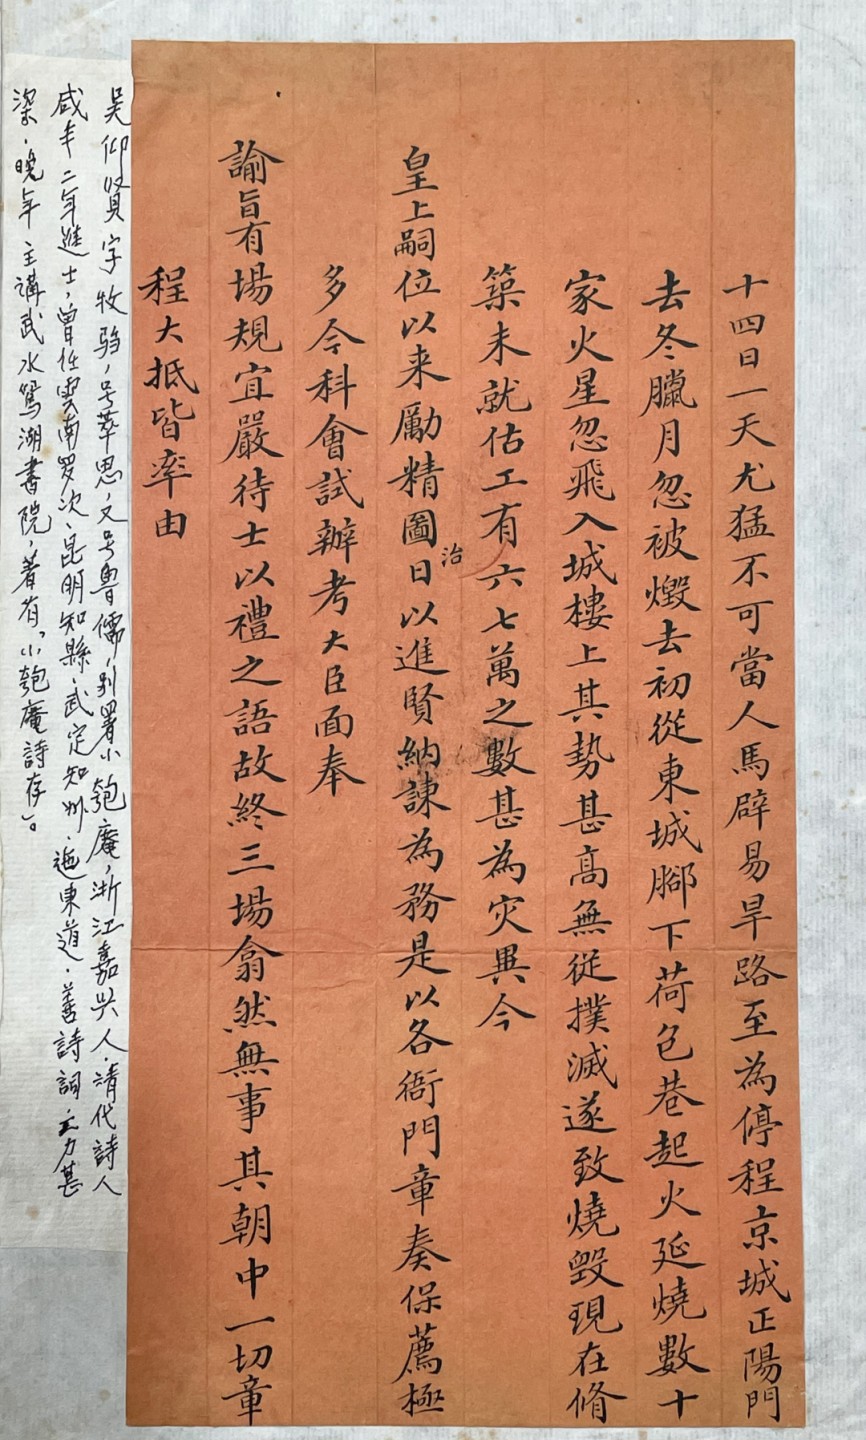 十四日一天尤猛不可當人馬辟易旱路至為停程京城正陽門
去冬臘月忽被燬去初從東城腳下荷包巷起火延燒數十
家火星忽飛入城樓上其勢甚高無從撲滅遂致燒毀現在脩
築未就估工有六七萬之數甚為灾異今
皇上嗣位以来勵精圖治日以進賢納諫為務是以各衙門章奏保薦極
多今科會試辦考大臣面奉
諭旨有場規宜嚴待士以禮之語故終三場翕然無事其朝中一切章
程大抵皆率由
吴仰賢字牧驺，号萃思，又号魯儒，别署小匏庵，浙江嘉兴人，清代詩人
咸丰二年進士，曾任雲南罗次、昆明知縣、武定知州、迤東道，善詩詞，工力甚
深，晚年主講武水鴛湖書院，著有“小匏庵詩存”。